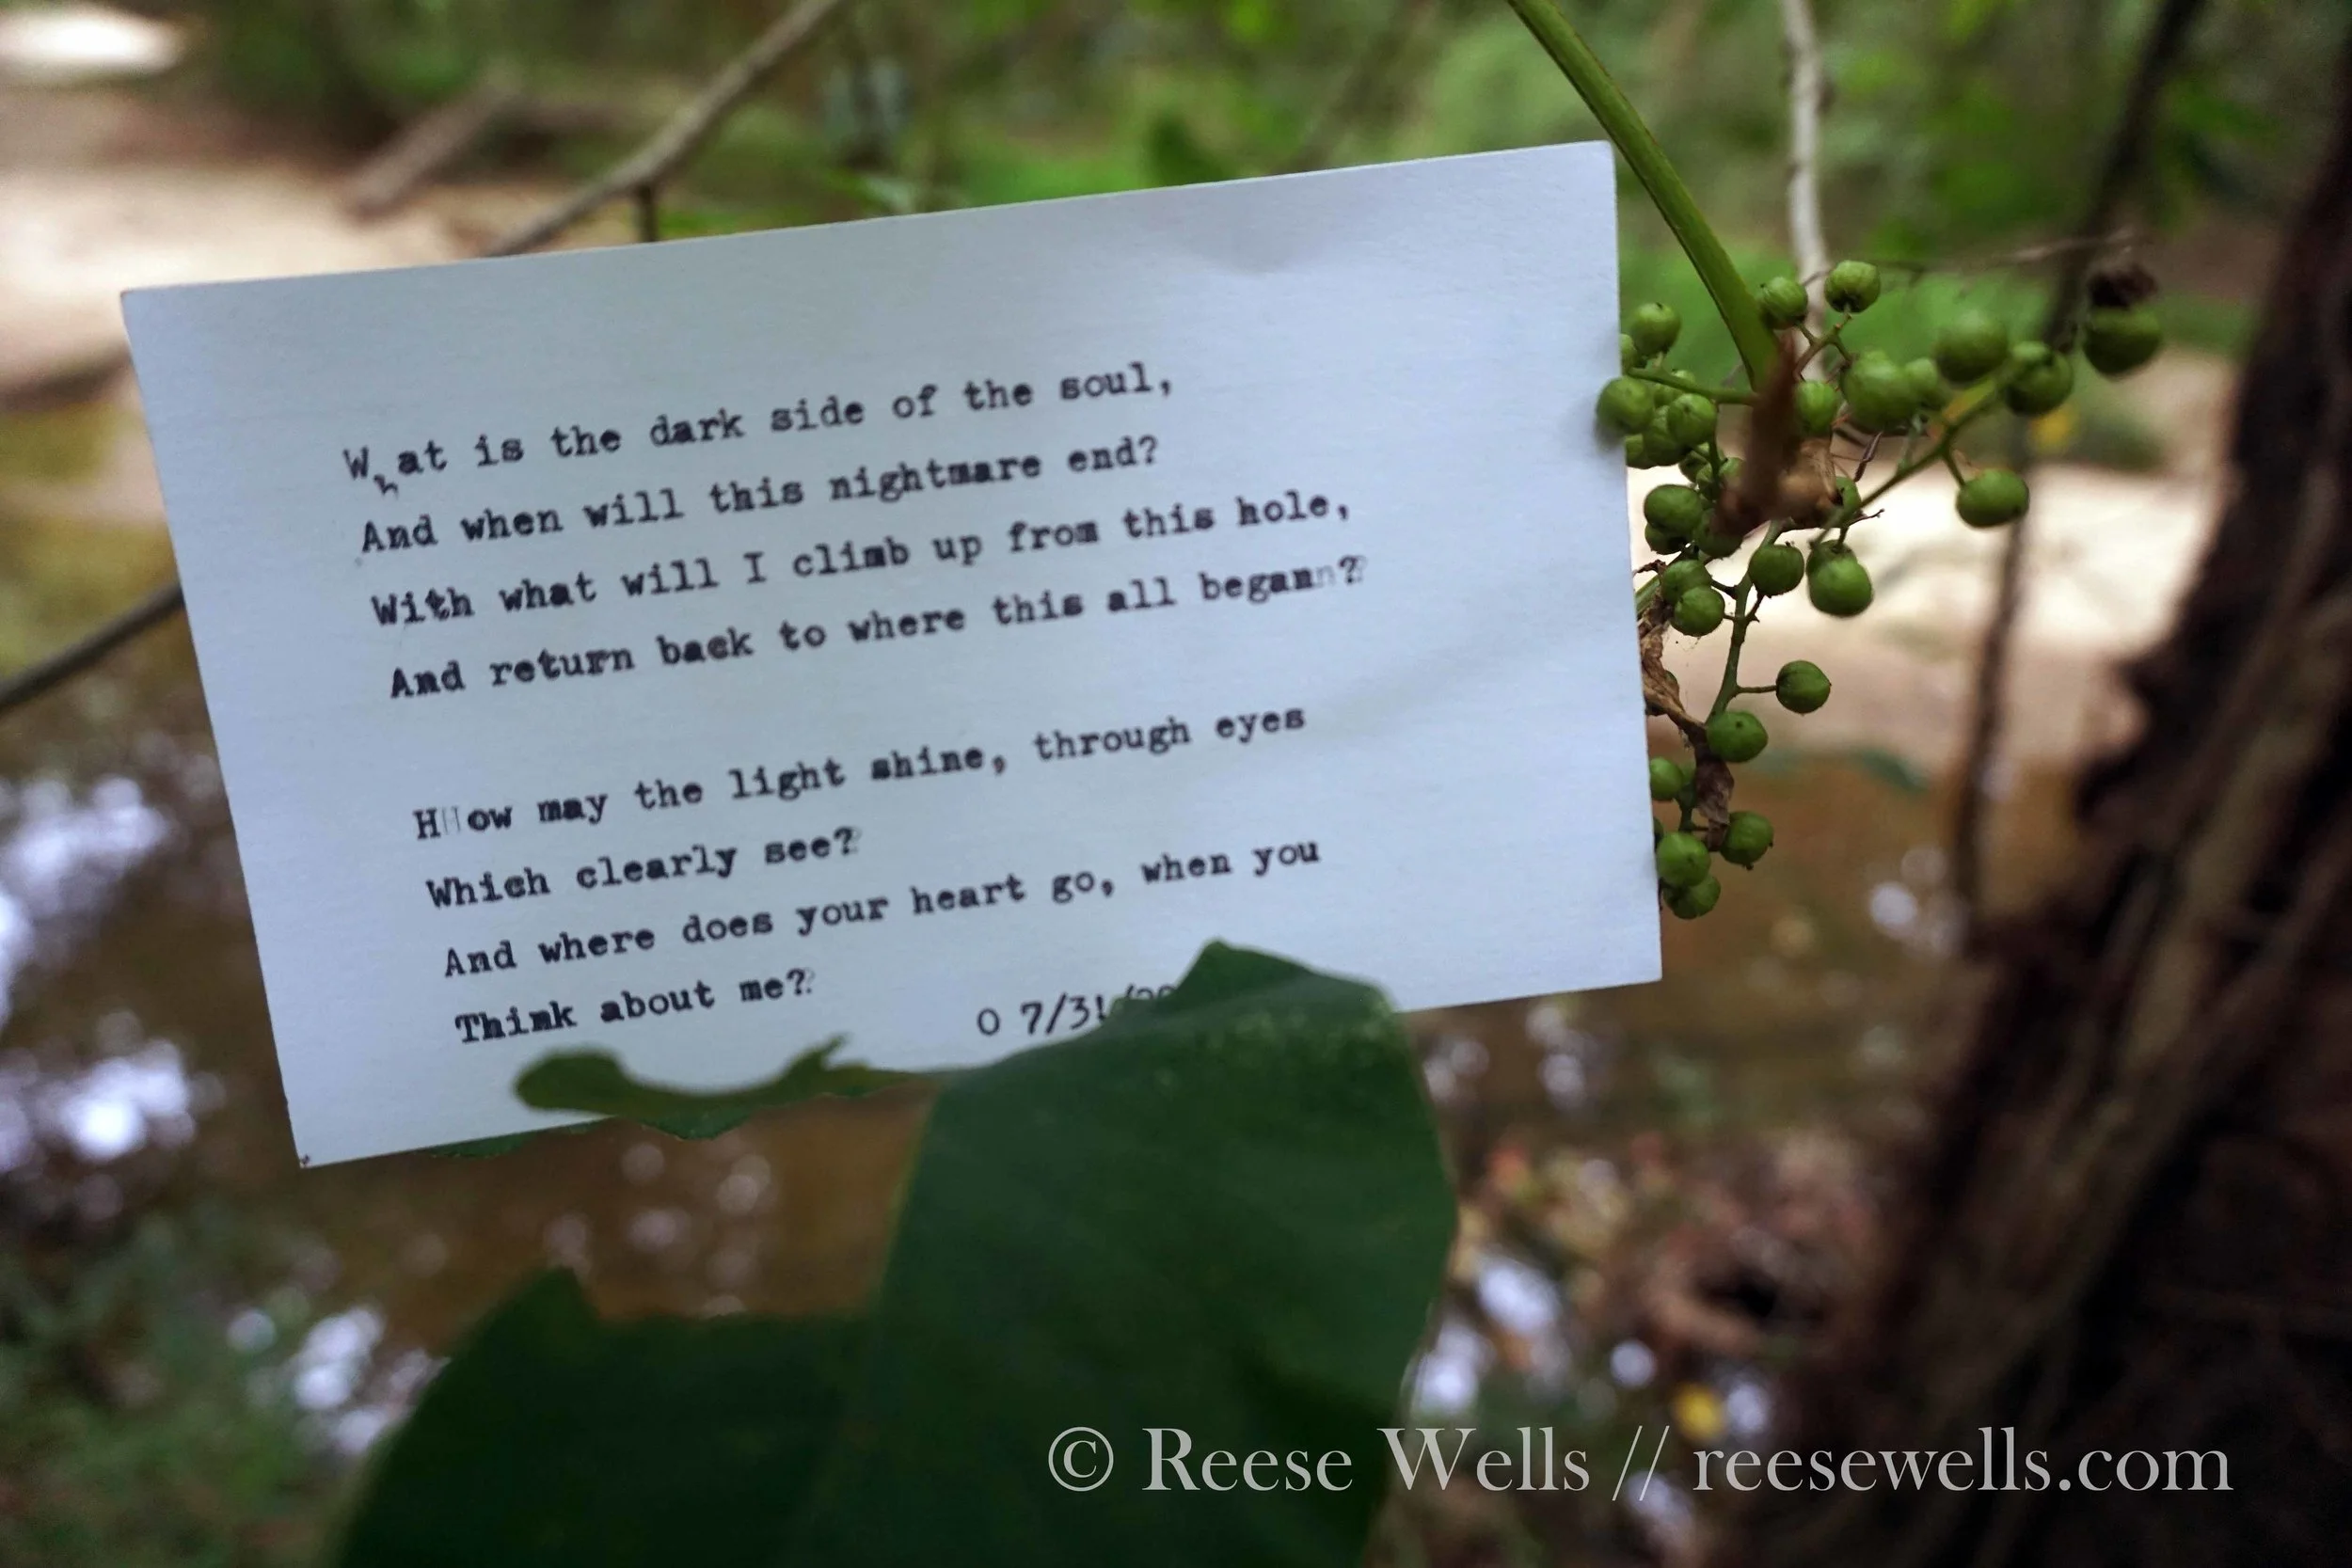 What is the dark side of the soul,
And when will this nightmare end?
With what will I climb up from this hole,
And return back to where this all began?
How may the light shine, through eyes
Which clearly see?
And where does your heart go, when you
Think about me?
0 7/31/20
© Reese Wells // reesewells.com